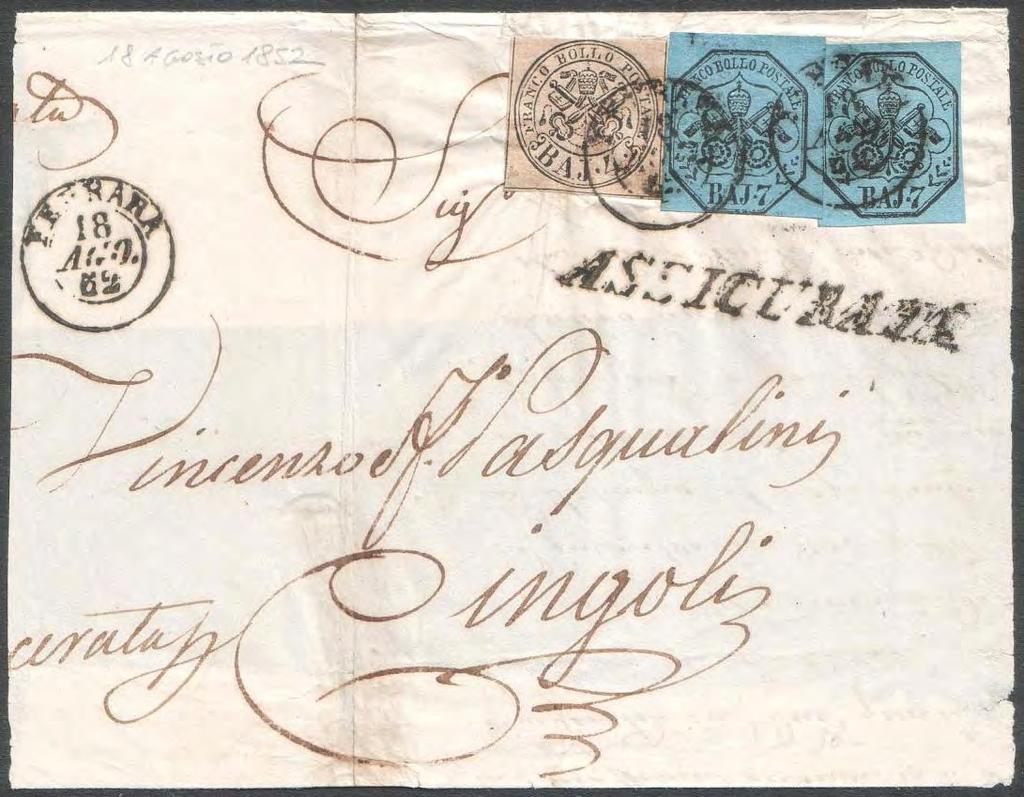 18 AGOSTO 1852
FRANCO BOLLO POSTALE
BAJ. 4
FRANCO BOLLO POSTALE
BAJ. 7
FRANCO BOLLO POSTALE
BAJ. 7
FERRARA
18
AGO.
52
Sig
ASSICURATA
Vincenzo Pasqualini
Cingoli
cerata